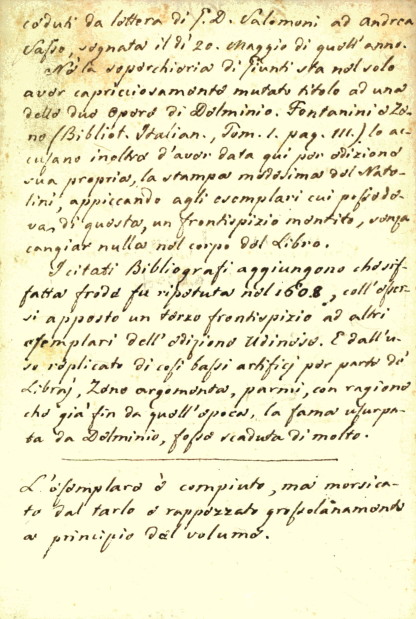 ceduti da lettera di G.D. Salomoni ad andrea
Sasso, segnata il dì 20. Maggio di quell'anno.
Nè la soperchieria di Giunti sta nel solo
aver capricciosamente mutato titolo ad una
delle due Opere di Delminio. Fontanini e Ze-
no (Bibliot. Italian., Tom. I. pag. 111.) lo ac-
cusano inoltre d'aver data qui per edizione
sua propria, la stampa medesima del Nato-
lini, appiccando agli esemplari cui possede-
va di questa, un frontispizio mentito, senza
cangiar nulla nel corpo del Libro.
I citati Bibliografi aggiungono che sif-
fatta frode fu ripetuta nel 1608, coll'esser-
si apposto un terzo frontispizio ad altri
esemplari dell'edizione Udinese. E dall'u-
so replicato di così bassi artificj per parte de'
Libraj, Zeno argomenta, parmi, con ragione
che già fin da quell'epoca, la fama usurpa-
ta da Delminio, fosse scaduta di molto.
L'esemplare è compiuto, ma morsica-
to dal tarlo e rappezzato grossolanamente
a principio del volume.